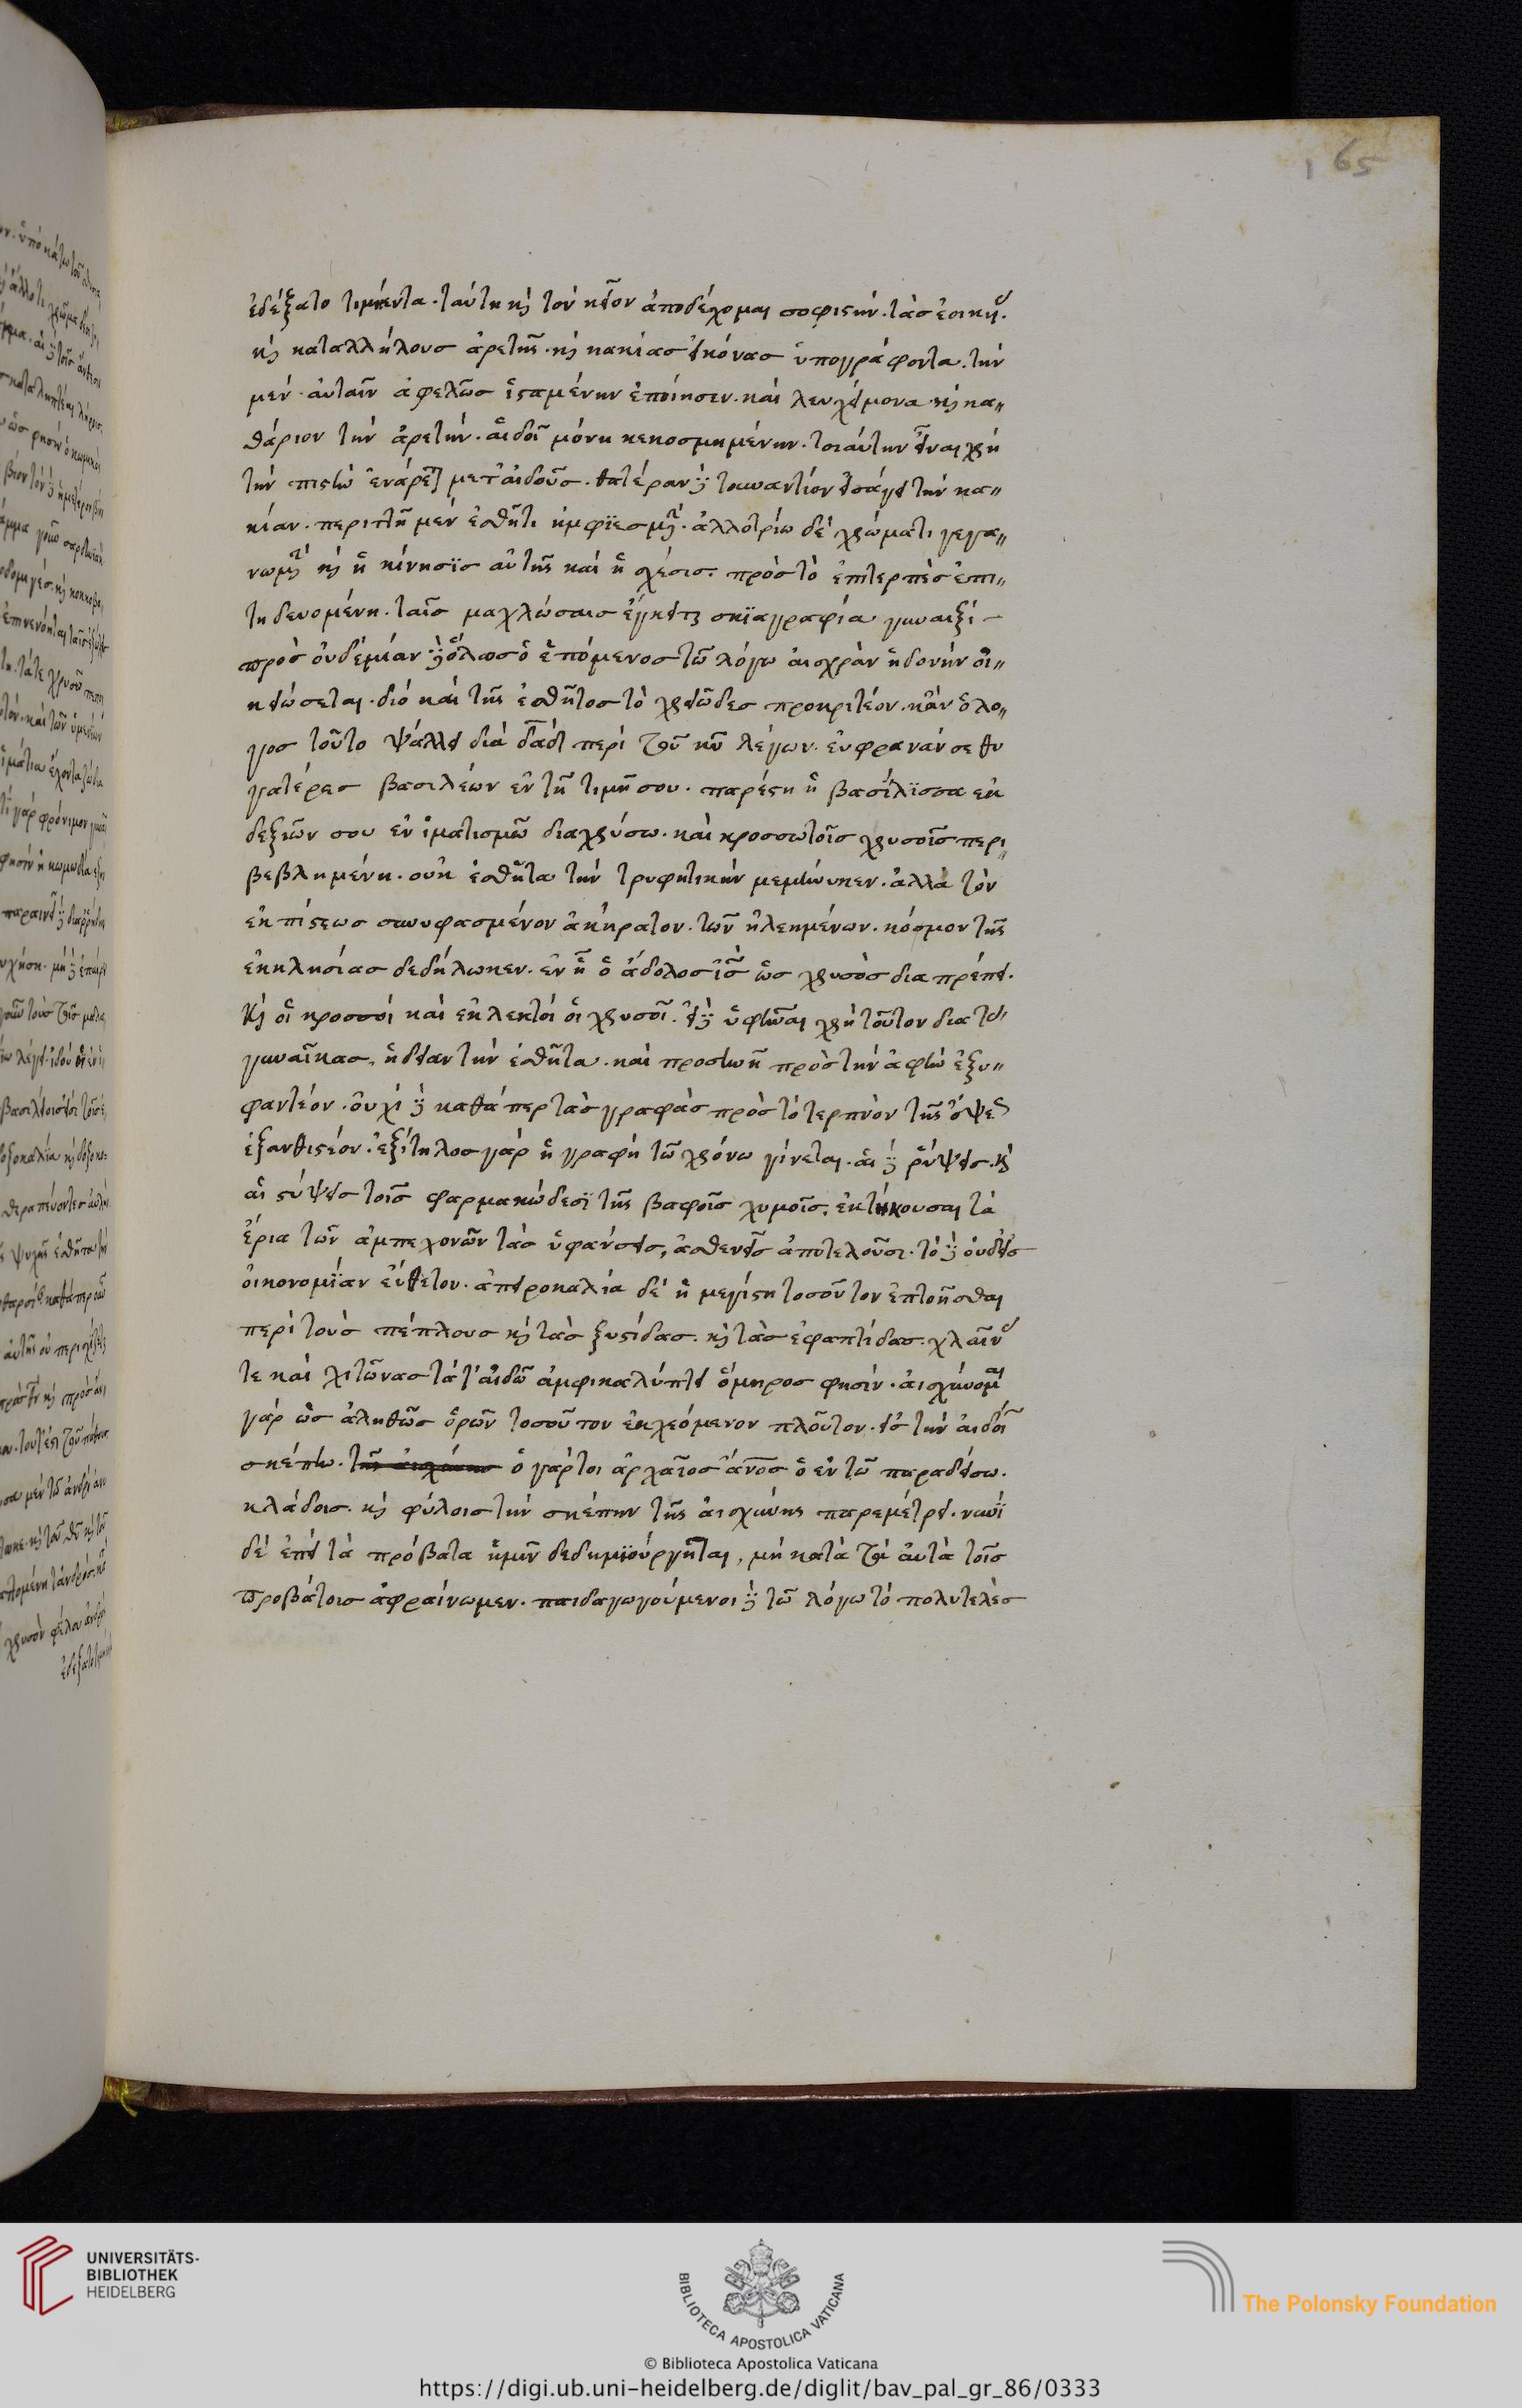 165
ἐδέξατο τιμήεντα. ταύτη καὶ τὸν κεῖον ἀποδέχομαι σοφιστήν. τὰς ἐοικυίας
καὶ καταλλήλους ἀρετῆς. καὶ κακίας εἰκόνας ὑπογράφοντα. τὴν
μέν. αὐταῖν ἀφελῶς ἱσταμένην ἐποίησεν. καὶ λευχείμονα καὶ κα〃
θάριον τὴν ἀρετήν. αἰδοῖ μόνη κεκοσμημένην. τοιαύτην εἶναι χρὴ
τὴν πιστὴν ἐνάρετον μετ' αἰδοῦς. θατέραν δὲ τοὐναντίον εἰσάγει τὴν κα〃
κίαν. περιττῆ μὲν ἐσθῆτι ἠμφϊεσμένην. ἀλλοτρίω δὲ χρώματι γεγα〃
νωμένην καὶ ἡ κίνησϊς αὐτῆς καὶ ἡ σχέσις. πρὸς τὸ ἐπιτερπὲς ἐπι〃
τηδευομένη. ταῖς μαχλώσαις ἔγκειται σκϊαγραφία γυναιξί
πρὸς οὐδεμίαν δὲ ὅλως ὁ ἑπόμενος τῶ λόγω αἰσχρὰν ἡδονὴν οἰ〃
κειώσεται. διὸ καὶ τῆς ἐσθῆτος τὸ χρειῶδες προκριτέον. κἂν ὁ λο〃
γος τοῦτο ψάλλει διὰ δαδ περὶ τοῦ κυ λέγων. εὔφραναν σε θυ
γατέρες βασιλέων ἐν τῆ τιμῆ σου. παρέστη ἡ βασίλϊσσα ἐκ
δεξιῶν σου ἐν ἱματισμῶ διαχρύσω. καὶ κροσσωτοῖς χρυσοῖς περι〃
βεβλημένη. οὐκ ἐσθῆτα τὴν τρυφητικὴν μεμήνυκεν. ἀλλὰ τὸν
ἐκ πίστεως συνυφασμένον ἀκήρατον. τῶν ἠλεημένων. κόσμον τῆς
ἐκκλησίας δεδήλωκεν. ἐν ἧ ὁ ἄδολος ις ὡς χρυσὸς διαπρέπει.
καὶ οἱ κροσσοὶ καὶ ἐκλεκτοὶ οἱ χρυσοῖ. εἰ δὲ ὑφεῖναι χρὴ τοῦτον διὰ τὰς
γυναῖκας, ἡδεῖαν τὴν ἐσθῆτα. καὶ προσηνῆ πρὸς τὴν ἀφὴν ἐξυ〃
φαντέον. οὐχὶ δὲ καθάπερ τὰς γραφὰς πρὸς τὸ τερπνὸν τῆς ὄψεως
ἐξανθιστέον. ἐξίτηλος γὰρ ἡ γραφὴ τῶ χρόνω γίνεται. αἱ δὲ ῥύψεις. καὶ
αἱ στύψεις τοῖς φαρμακώδεσϊ τῆς βαφοῖς χυμοῖς. ἐκτήκουσαι τὰ
ἔρια τῶν ἀμπεχονῶν τὰς ὑφάνσεις, ἀσθενεῖς ἀποτελοῦσι. τὸ δὲ οὐδ' εἰς
οἰκονομϊαν εὔθετον. ἀπειροκαλία δὲ ἡ μεγίστη τοσοῦτον ἐπτοῆσθαι
περὶ τοὺς πέπλους καὶ τὰς ξυστίδας. καὶ τὰς ἐφαπτίδας. χλαίνας
τε καὶ χιτῶνας τὰ τ' αἰδῶ ἀμφικαλύπτει ὅμηρος φησίν. αἰσχύνομαι
γὰρ ὡς ἀληθῶς ὁρῶν τοσοῦτον ἐκχεόμενον πλοῦτον. εἰς τὴν αἰδοῖ
σκέπην. τῆς αἰσχύνης ὁ γάρ τοι ἀρχαῖος ανος ὁ ἐν τῶ παραδείσω.
κλάδοις. καὶ φύλοις τὴν σκέπην τῆς αἰσχύνης παρεμέτρει. νυνὶ
δὲ ἐπεὶ τὰ πρόβατα ἡμῖν δεδημϊούργηται, μὴ κατὰ ταὐτὰ τοῖς
προβάτοις ἀφραίνωμεν. παιδαγωγούμενοι δὲ τῶ λόγω τὸ πολυτελὲς
UNIVERSITÄTS-
BIBLIOTHEK
HEIDELBERG
BIBLIOTECA APOSTOLICA VATICANA
The Polonsky Foundation
© Biblioteca Apostolica Vaticana
https://digi.ub.uni-heidelberg.de/diglit/bav_pal_gr_86/0333